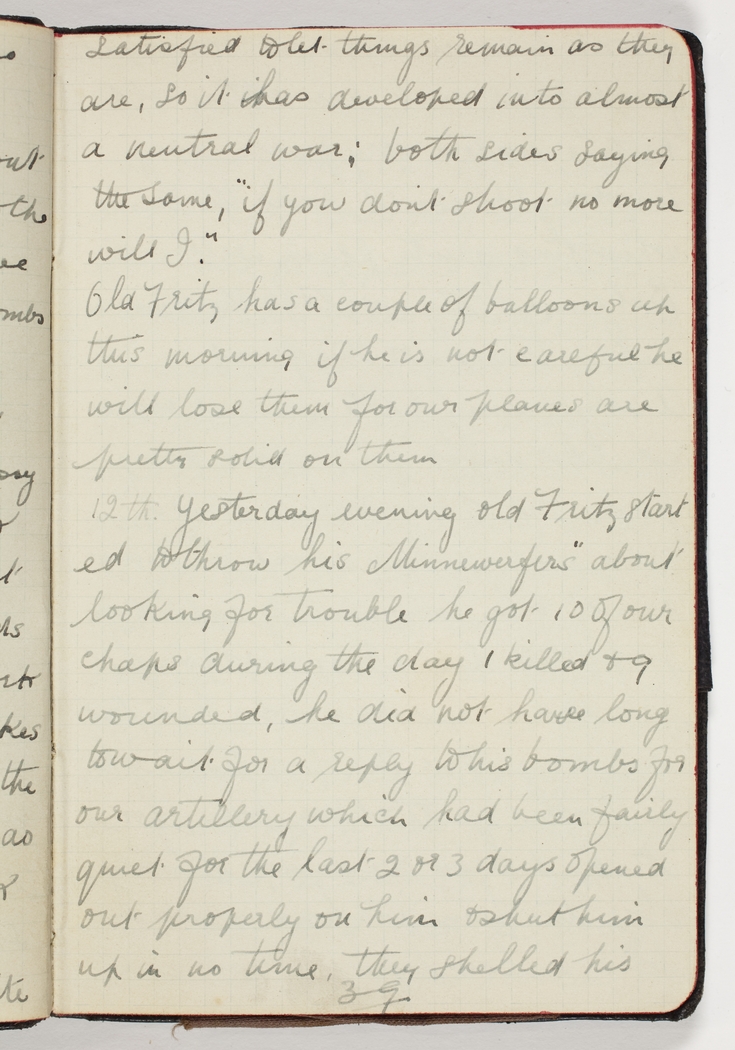 satisfied to let things remain as they
are, so it has developed into almost
a neutral war; both sides saying
the same, "if you don't shoot no more
will I."
Old Fritz has a couple of balloons up
this morning if he is not careful he
will lose them for our planes are
pretty solid on them
12th. Yesterday evening old Fritz start
ed to throw his Minnewerfers" about
looking for trouble he got 10 of our
chaps during the day 1 killed & 9
wounded, he did not have long
to wait for a reply to his bombs for
our artillery which had been fairly
quiet for the last 2 or 3 days opened
out properly on him & shut him
up in no time, they shelled his
39
out
the
ombs
the
ao